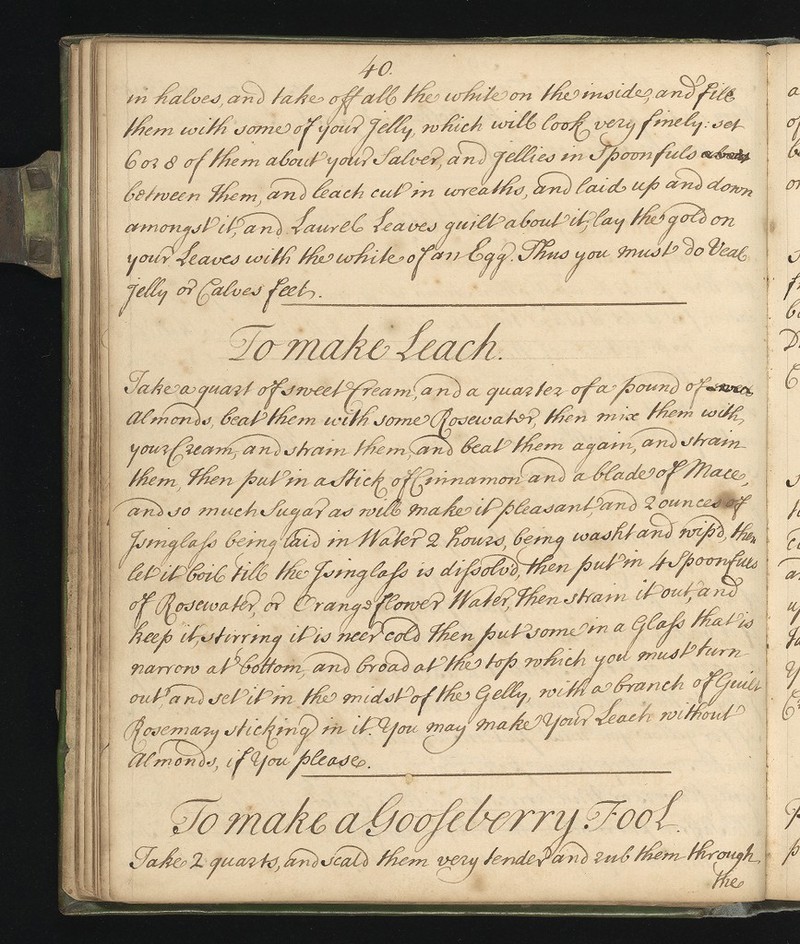 40.
in halves, and take off all the white on the inside, and fill
them with some of your Jelly, which will look very finely: set
6 or 8 of them about your Salver, and Jellies in Spoonfuls
between them, and leach cut in wreaths, and laid up and down
amongst it, and Laurel Leaves guilt about it, lay the gold on
your Leaves with the white of an Egg. Thus you must do Veal
Jelly or Calves feet.
To make Leach.
Take a quart of sweet Cream, and a quarter of a pound of
Almonds, beat them with some Rosewater, then mix them with
your Cream, and strain them, and beat them again, and strain
them, then put in a Stick of Cinnamon and a blade of Mace,
and so much Sugar as will make it pleasant and 2 ounces of
Isinglass being laid in Water 2 hours, being washt and wip'd, then
let it boil till the Isinglass is dissolv'd, then put in 4 Spoonfuls
of Rosewater, or Orange flower Water, then strain it out, and
keep it stirring it is neer cold then put some in a Glass that is
narrow at bottom, and broad at the top which you must turn
out, and set it in the midst of the Gelly, with a branch of Guilt
Rosemary sticking in it. You may make your Leach without
Almonds, if You please.
To make a Gooseberry Fool.
Take 2 quarts, and scald them very tender and rub them through
the